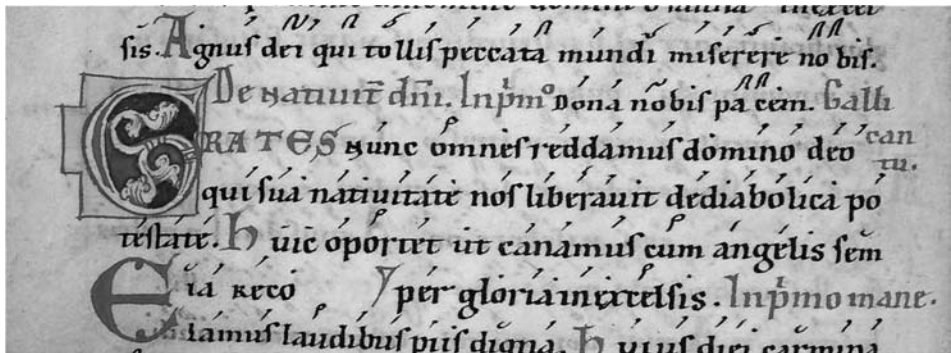 sis. Agnus dei qui tollis peccata mundi miserere nobis.
De natiuit̄ dn̄i. In p̄mo Dona nobis pacem. Galli
GRATES Nunc omnes reddamus domino deo can
tu.
qui sua natiuitate nos liberauit de diabolica po
testate. huic oportet ut canamus cum angelis sem
Eia reco per gloria in excelsis. In p̄mo mane.
lamus laudibus piis digna. huius diei carmina